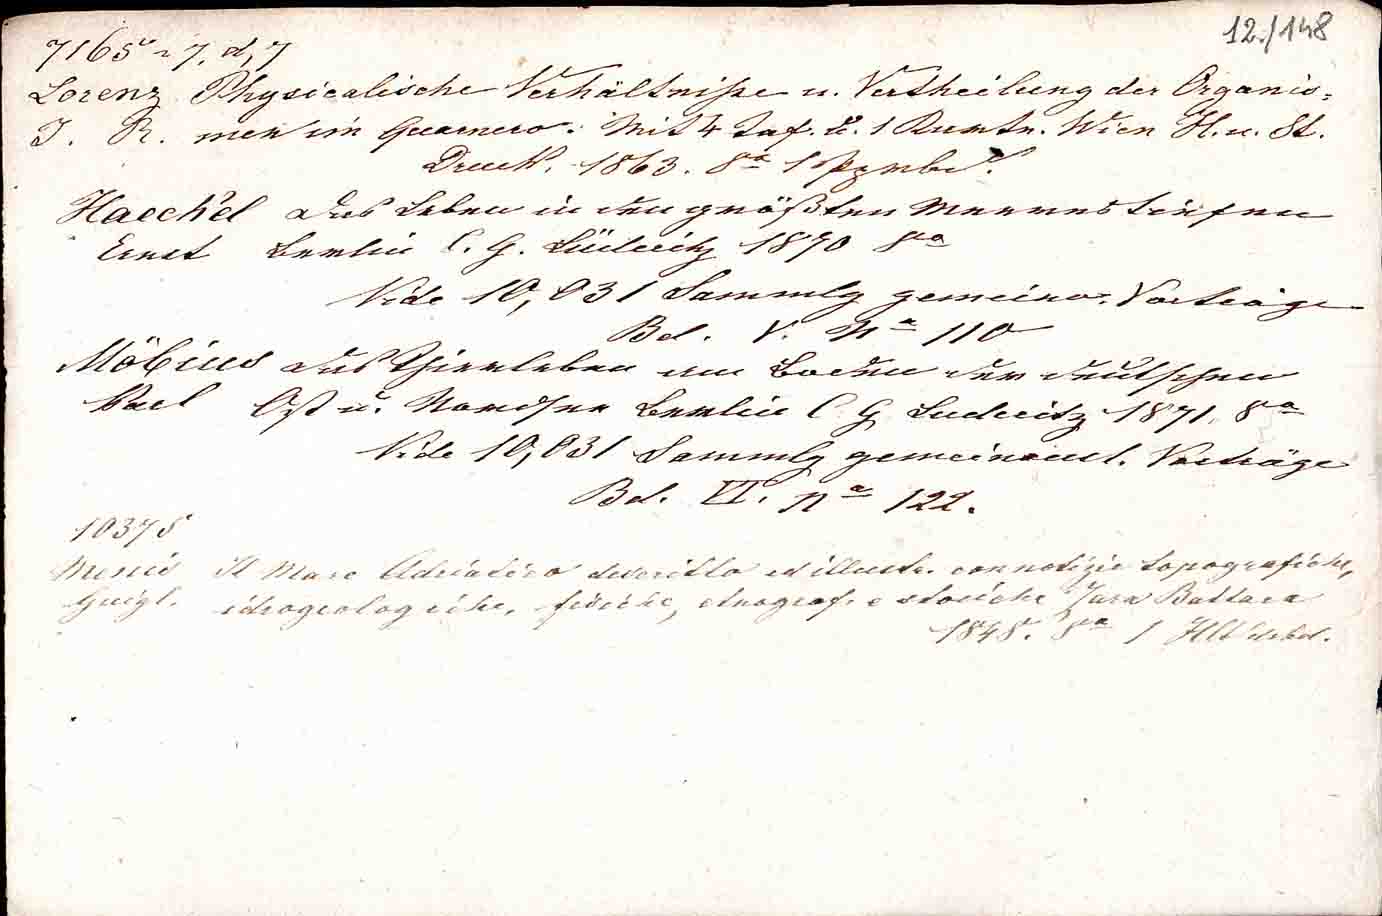 12./148
7165
Lorenz Physicalische Verhältniße u. Vertheilung der Organis=
J. R. men im Quarnero. Mit 4 Taf. u. 1 Wien H. u. St.
Druck. 1863. 8°
Haeckel das Leben in den größten Meerestiefen
Ernst Berlin C. G. Lüderitz 1870 8°
Vide 10,031 Sammlg gemeinv. Vorträge
Bd. V. N° 110
Möbius das Thierleben am Boden der deutschen
Karl Ost u. Nordsee Berlin C G Luderitz 1871. 8°
Vide 10,031 Sammlg gemeinverst. Vorträge
Bd. VI. N° 122.
10375
Menis Il Mare Adriatico descritto ed illustr. con notizie topografiche,
Guigl. idrogeologiche, fisiche, etnograf. e storiche Zara Battara
1848. 8° 1